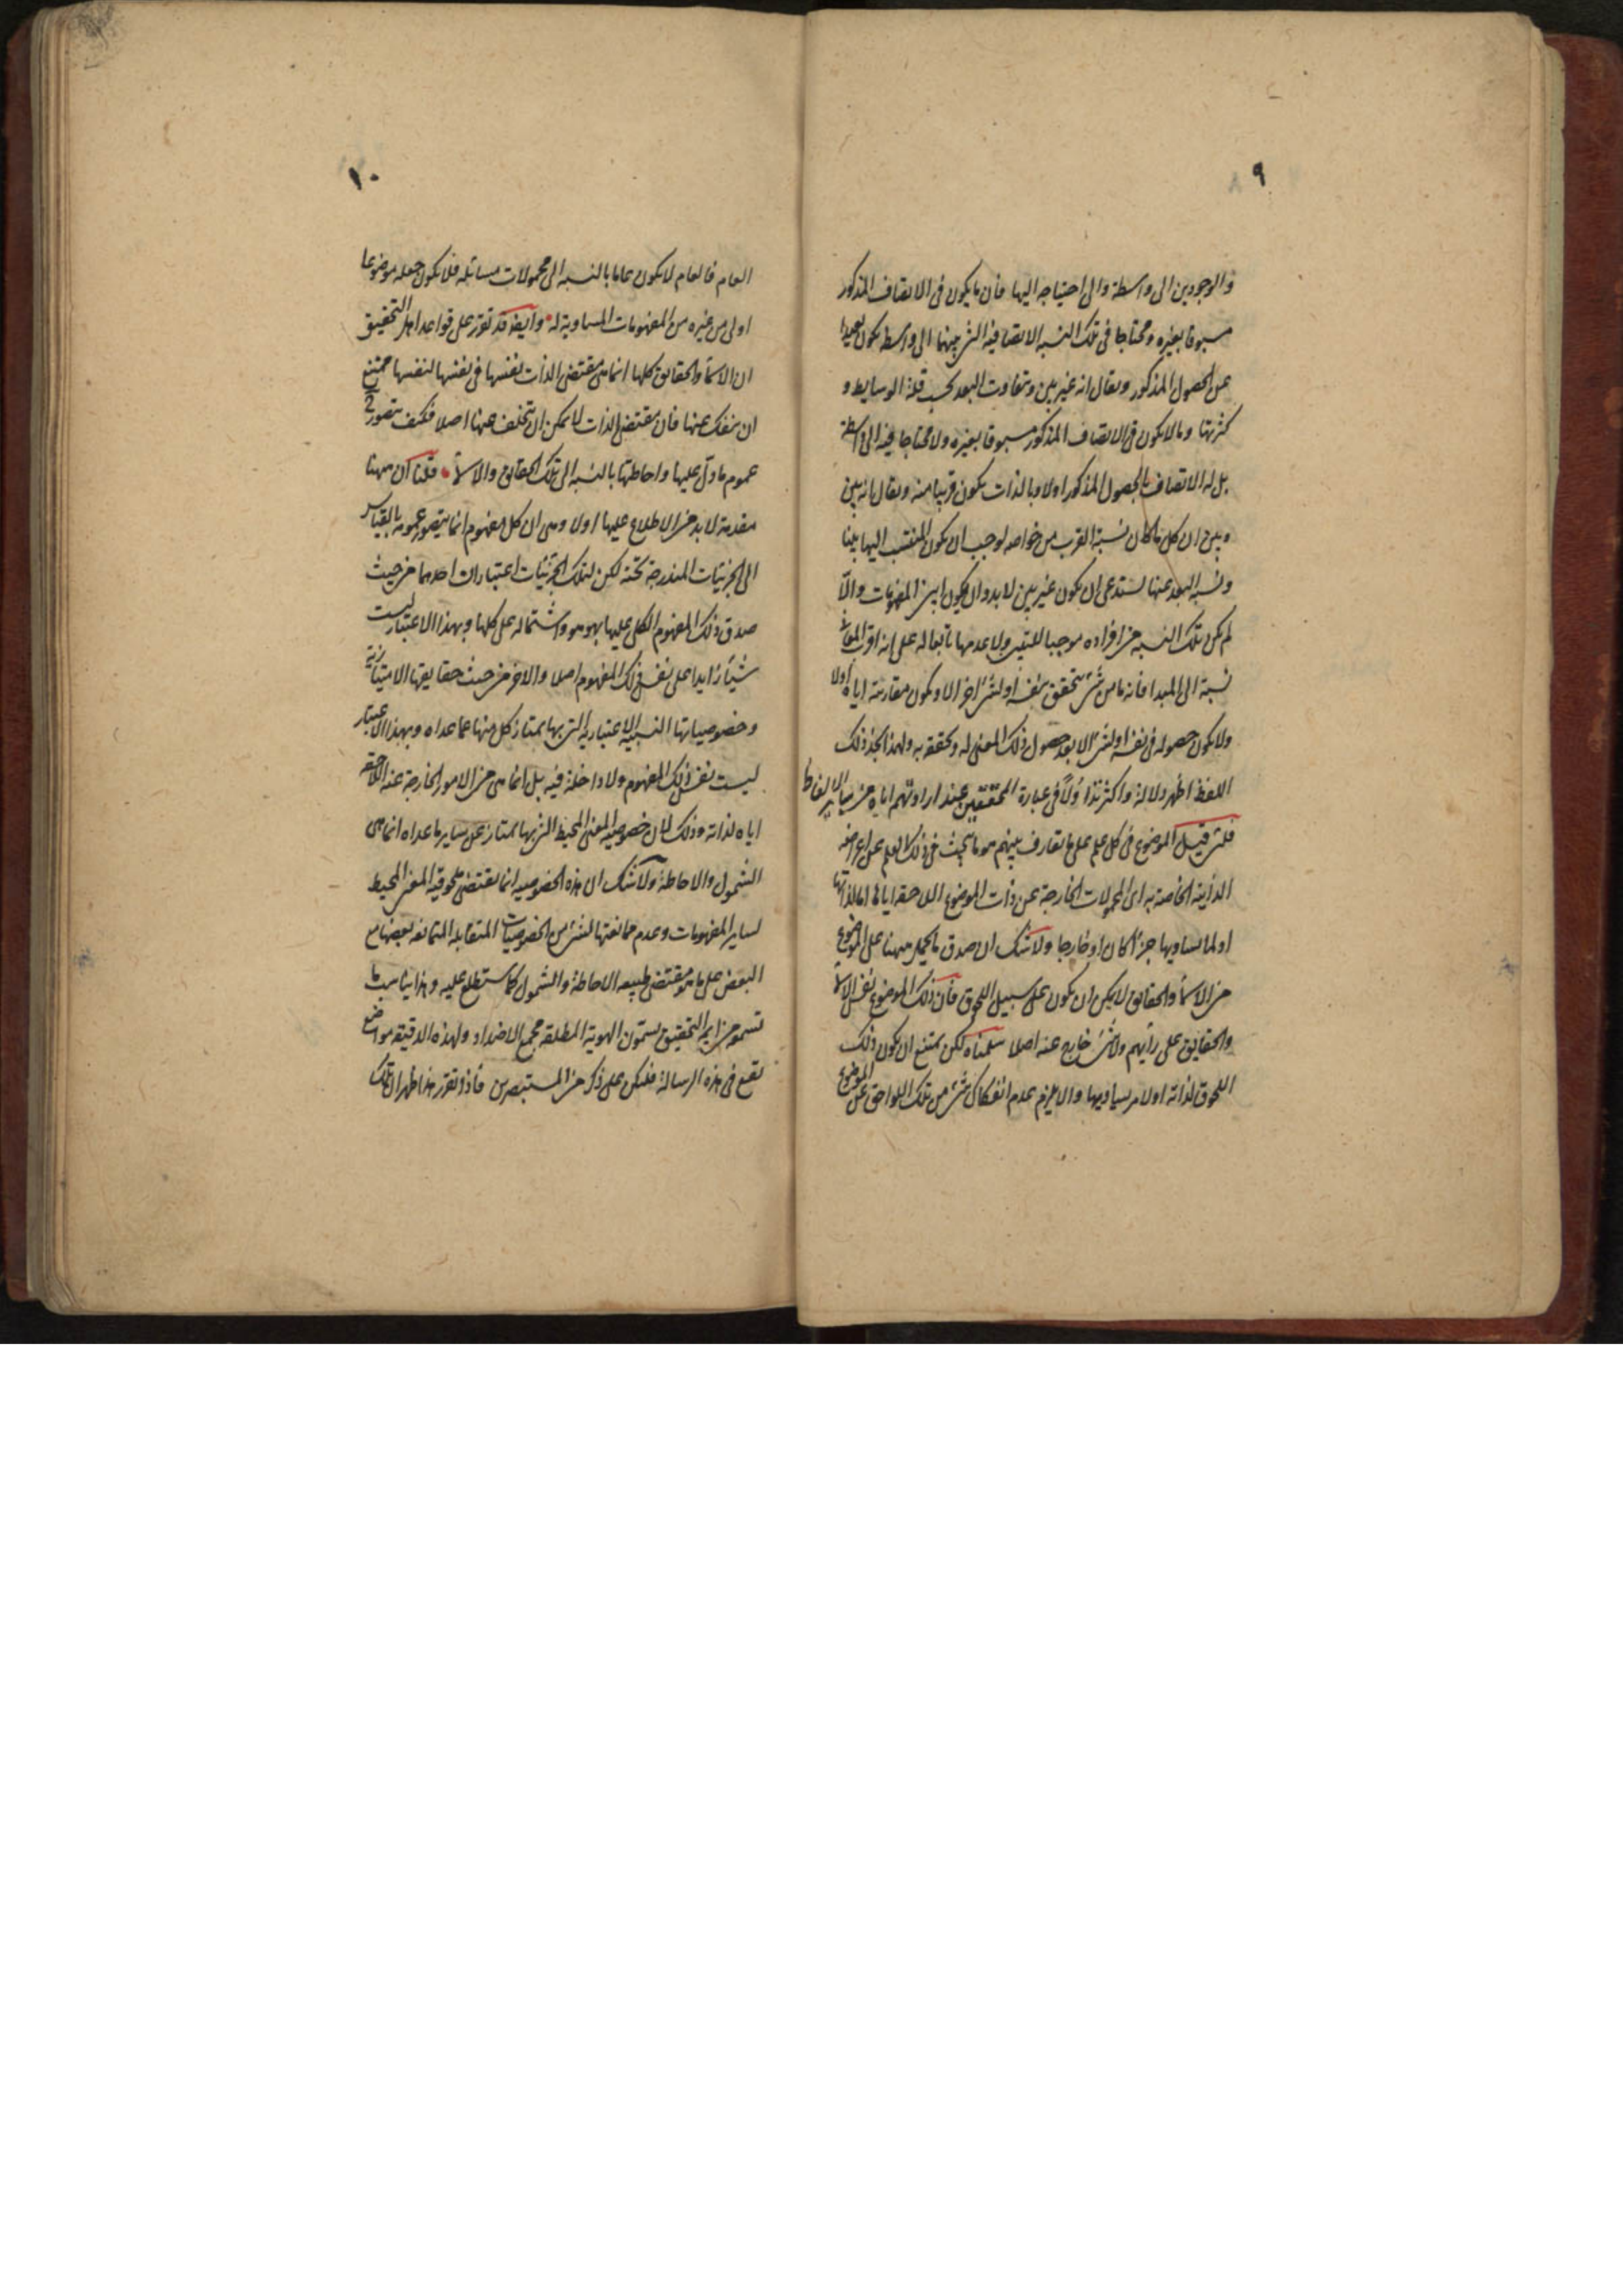 ٩
والوجودين الى واسطة والى احتياجه اليها فان ما يكون فى الاتصاف المذكور
مسبوقا بغيره ومحتاجا فى تلك النسبه الاتصافية التى بينهما الى واسطه يكون بعيدا
عن الحصول المذكور ويقال انه غير بين وتتفاوت البعد بحسب قلة الوسايط و
كثرتها وما لا يكون فى الاتصاف المذكور مسبوقا بغيره ولا محتاجا فيه الى واسطة
بل له الاتصاف بالحصول المذكور اولا وبالذات يكون قريبا منه ويقال انه بين
وبين ان كل ما كان نسبة القرب من خواصه لوجب ان يكون المنتسب اليها بينا
ونسبة البعد عنها تستدعى ان يكون غير بين لا بد وان يكون ابين المفهومات والّا
لم يكن تلك النسبه من افراده موجبا للتبين ولا عدمها تابعا له على انه اقرب المعانى
نسبة الى المبدا فانه ما من شئ يتحقق بنفسه او لشئ اخر الا ويكون مقارنته اياه اولا
ولا يكون حصوله فى نفسه او لشئ الا بعد حصول ذلك المعنى له وتحققه به ولهذا تجد ذلك
اللفظ اظهر دلالة واكثر تداولًا فى عبارة المحققين عند ارادتهم اياه من ساير الالفاظ
فلئن قيل الموضوع فى كل علم على ما تعارف بينهم هو ما يبحث فى ذلك العلم عن اعراضه
الذاتية الخاصة به اى المحمولات الخارجة عن ذات الموضوع اللاحقه اياها اما لذاتها
او لما يساويها جزءا كان او خارجا ولا شك ان صدق ما يحمل ههنا على الموضوع
من الاسماء والحقايق لا يمكن ان يكون على سبيل اللحوق فان ذلك الموضوع نفس الاسماء
والحقايق على رأيهم ولا شئ خارج عنه اصلا سلمناه لكن يمتنع ان يكون ذلك
اللحوق لذاته او لامر يساويها والا يلزم عدم انفكاك شئ من تلك اللواحق عن الموضوع
١٠
العام فالعام لا يكون عاما بالنسبه الى محمولات مسائله فلا يكون جعله موضوعا
اولى من غيره من المفهومات المساوية له وايضا قد تقرر على قواعد اهل التحقيق
ان الاسماء والحقايق كلها انما هى مقتضى الذات بنفسها فى نفسها لنفسها ممتنع
ان ينفك عنها فان مقتضى الذات لا يمكن ان يتخلف عنها اصلا فكيف يتصور ح
عموم ما دل عليها واحاطتها بالنسبه الى تلك الحقايق والاسماء قلنا ان ههنا
مقدمة لا بد من الاطلاع عليها اولا وهى ان كل مفهوم انما يتصور عمومه بالقياس
الى الجزئيات المندرجة تحته لكن لتلك الجزئيات اعتباران احدهما من حيث
صدق ذلك المفهوم الكلى عليها بهو هو واشتماله على كلها وبهذا الاعتبار ليست
شيأ زايدا على نفس ذلك المفهوم اصلا والاخر من حيث حقايقها الامتيازية
وخصوصياتها النسبية الاعتبارية التى بها يمتاز كل منها عما عداه وبهذا الاعتبار
ليست نفس ذلك المفهوم ولا داخلة فيه بل انما هى من الامور الخارجة عنه اللاحقة
اياه لذاته وذلك لان خصوصية المعنى المحيط التى بها يمتاز عن ساير ما عداه انما هى
الشمول والاحاطة ولا شك ان هذه الخصوصيه انما تقتضى ملحوقية المعنى المحيط
لساير المفهومات وعدم ممانعتها لشئ من الخصوصيات المتقابله المتمانعه بعضها مع
البعض على ما هو مقتضى طبيعه الاحاطة والشمول كما ستطلع عليه وهذا يناسب ما
تسمع من ايمة التحقيق يسمون الهوية المطلقة مجمع الاضداد ولهذه الدقيقه مواضع
تقع فى هذه الرسالة فليكن على ذكر من المستبصرين فاذا تقرر هذا ظهر ان تلك